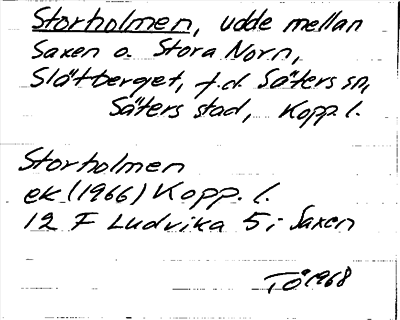 Storholmen, udde mellan
Saxen o. Stora Norn,
Slätberget, f.d. Säters sn,
Säters stad, Kopp. l.
Storholmen
ek (1966) Kopp. l.
12 F Ludvika 5 i Saxen
TÖ 1968